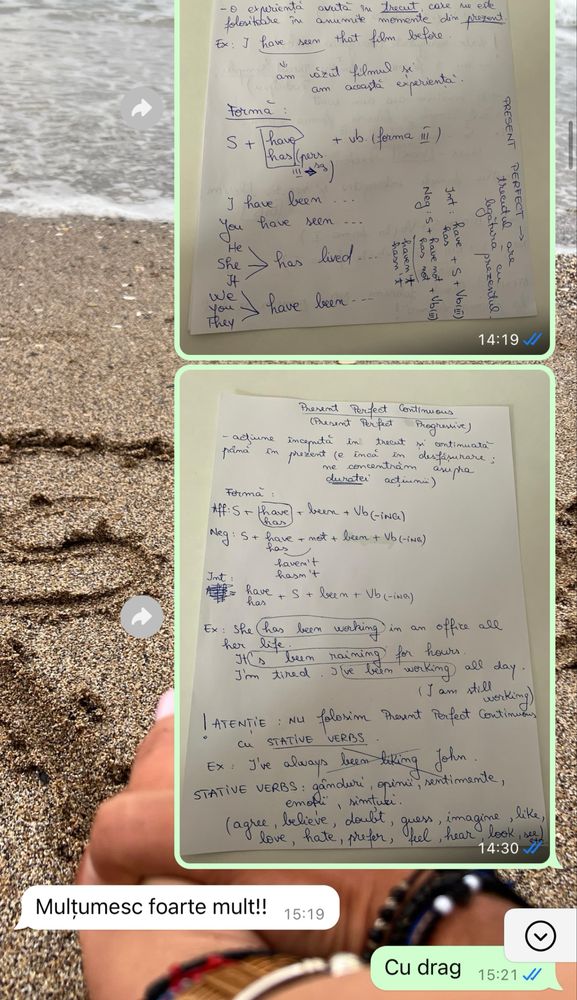 - o experiență avută în trecut, care ne este
folositoare în anumite momente din prezent.
Ex: I have seen that film before.
am văzut filmul și
am această experiență.
Formă:
S + have + vb (forma III)
has (pers
III sg)
I have been ...
You have seen ...
He
She has lived ...
It
We
You have been ...
They
PRESENT PERFECT →
trecutul are
legătură cu
prezentul
Int: have + S + Vb(III)
has
Neg: S + have not + Vb(III)
has not
haven't
hasn't
14:19
Present Perfect Continuous
(Present Perfect Progressive)
- acțiune începută în trecut și continuată
până în prezent (e încă în desfășurare;
ne concentrăm asupra
duratei acțiunii)
Formă:
Aff: S + have + been + Vb (-ING)
has
Neg: S + have + not + been + Vb (-ING)
has
haven't
hasn't
Int:
have + S + been + Vb (-ING)
has
Ex: She has been working in an office all
her life.
It's been raining for hours.
I'm tired. I've been working all day.
(I am still
working)
! ATENȚIE: NU folosim Present Perfect Continuous
cu STATIVE VERBS.
Ex: I've always been liking John.
STATIVE VERBS: gânduri, opinii, sentimente,
emoții, simțuri.
(agree, believe, doubt, guess, imagine, like,
love, hate, prefer, feel, hear, look, see)
14:30
Mulțumesc foarte mult!! 15:19
Cu drag 15:21